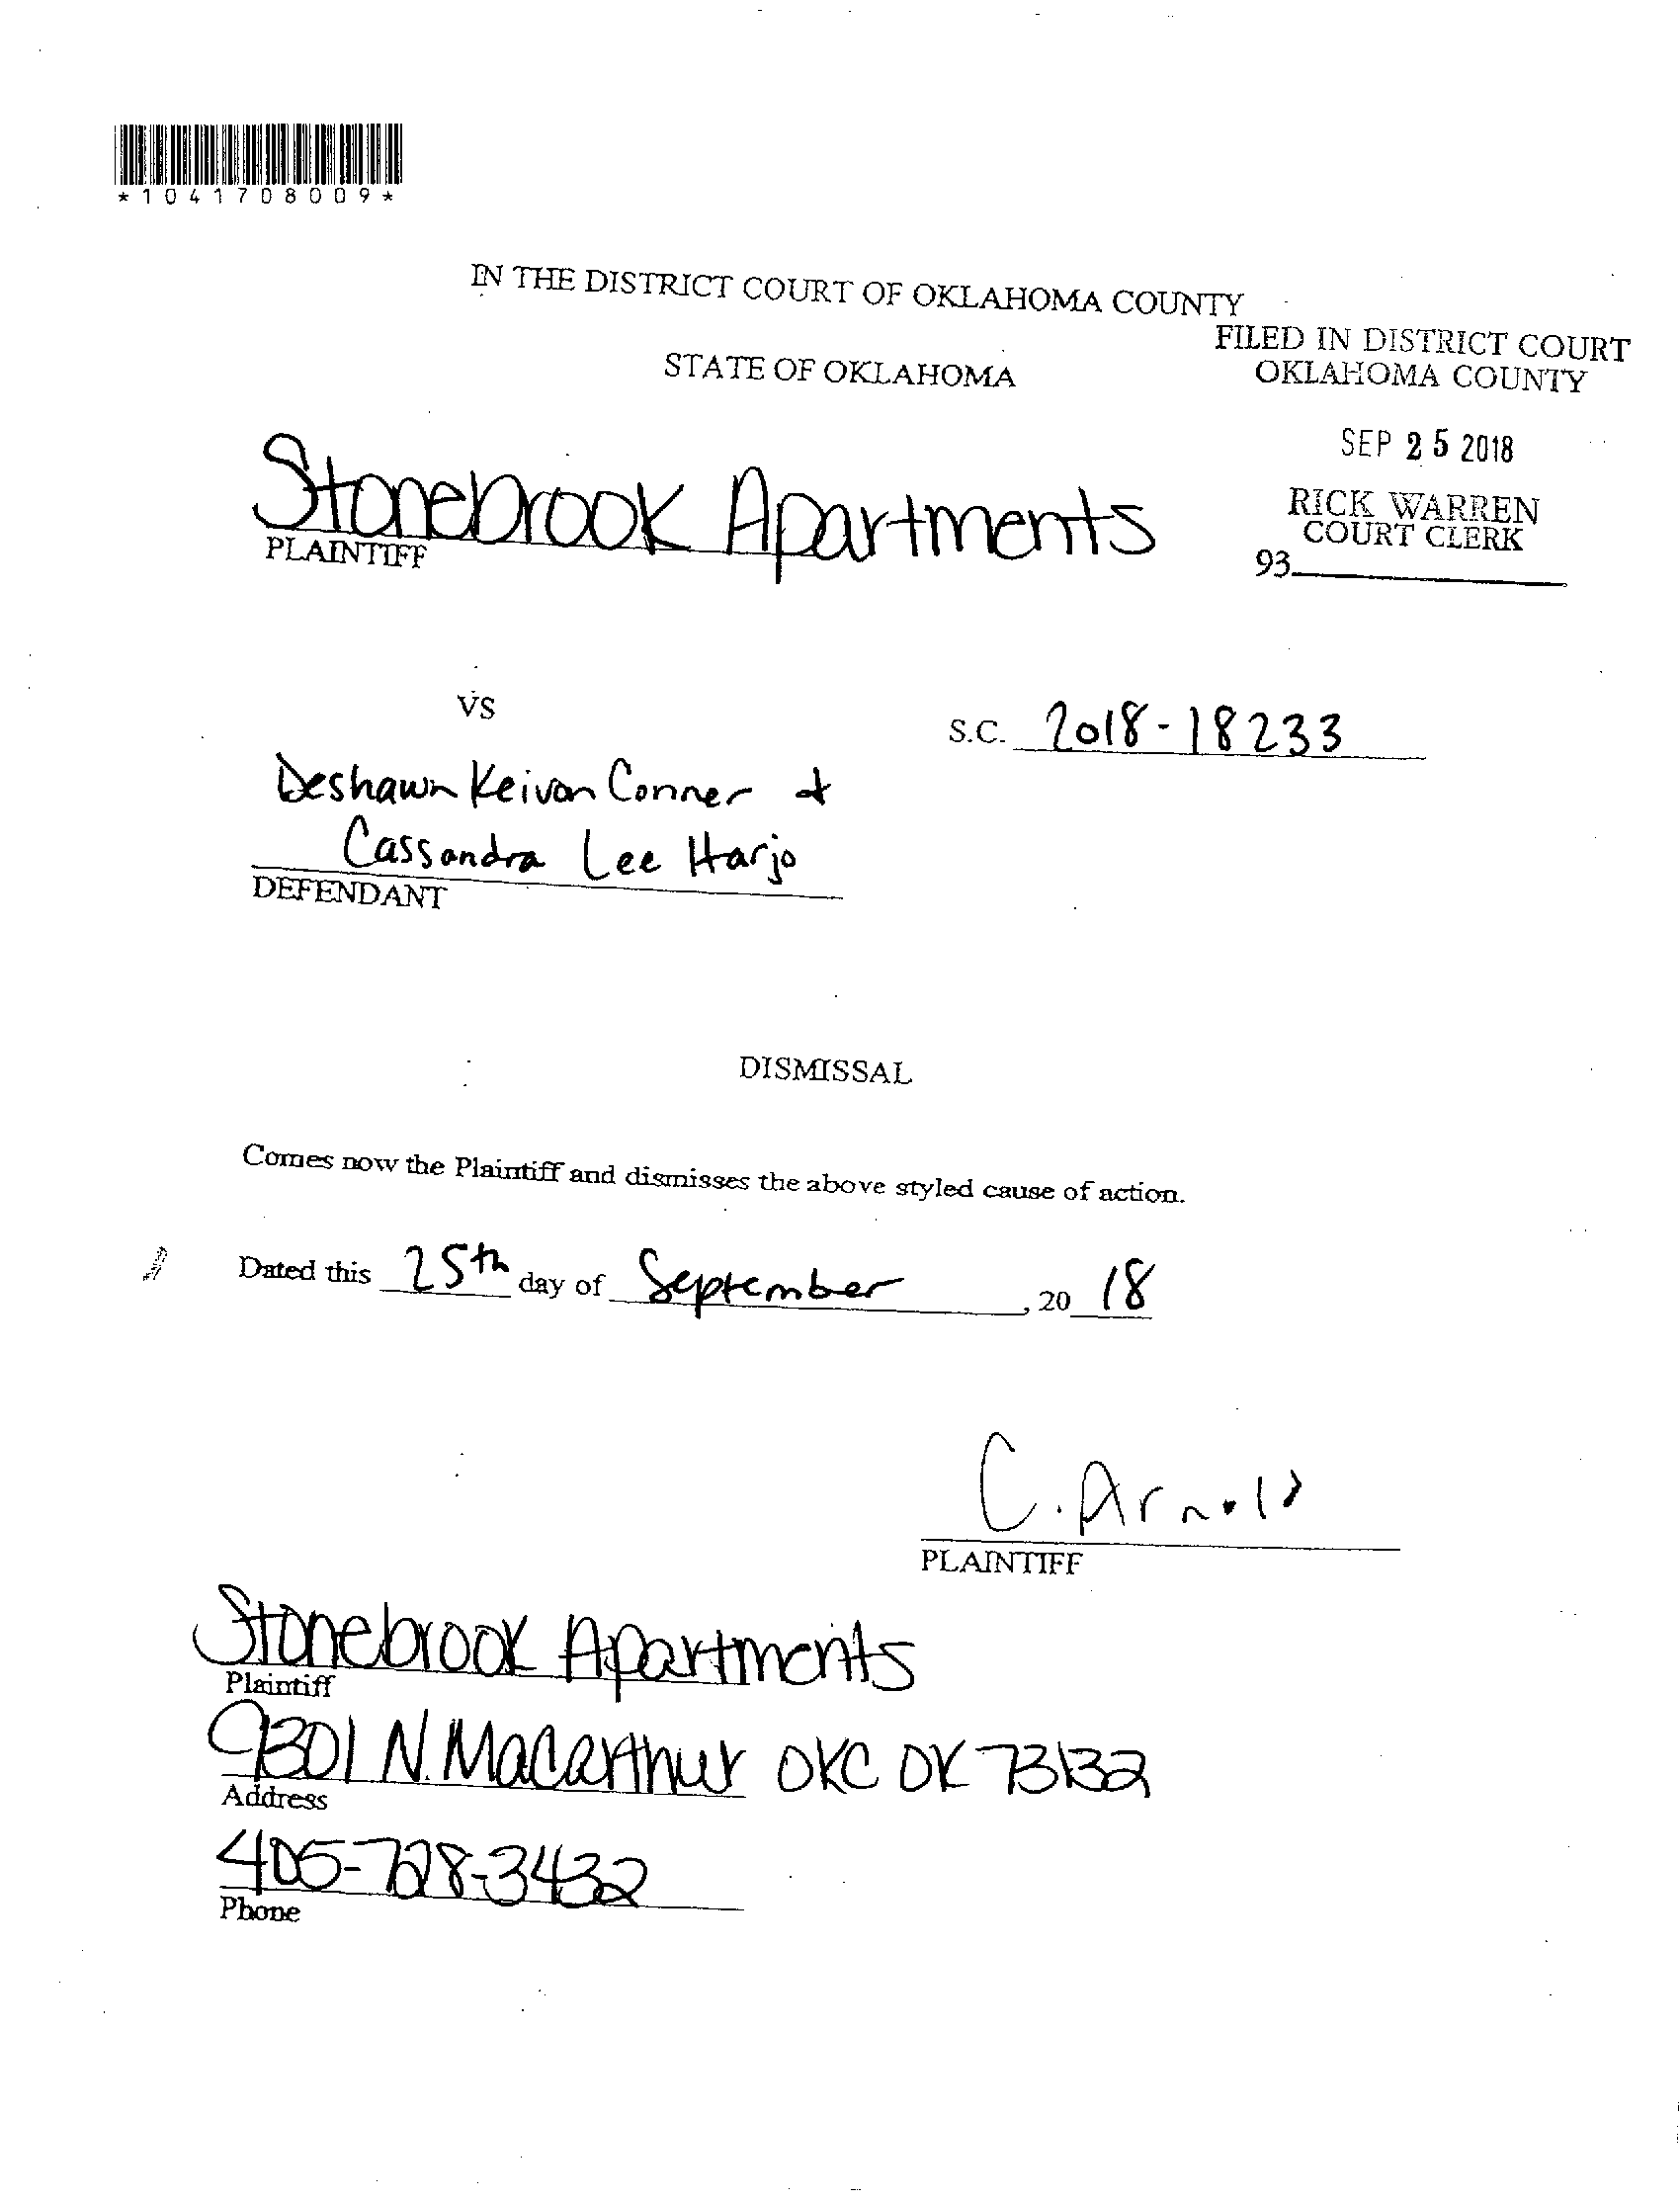 *1041708009*
IN THE DISTRICT COURT OF OKLAHOMA COUNTY
FILED IN DISTRICT COURT
STATE OF OKLAHOMA
OKLAHOMA COUNTY
SEP 25 2018
Stonebrook Apartments
PLAINTIFF
RICK WARREN
COURT CLERK
93
VS
S.C. 2018-18233
Deshawn Keivon Conner &
Cassandra Lee Harjo
DEFENDANT
DISMISSAL
Comes now the Plaintiff and dismisses the above styled cause of action.
Dated this 25th day of September, 20 18
C. Arnold
PLAINTIFF
Stonebrook Apartments
Plaintiff
9301 N. MacArthur OKC OK 73132
Address
405-728-3432
Phone